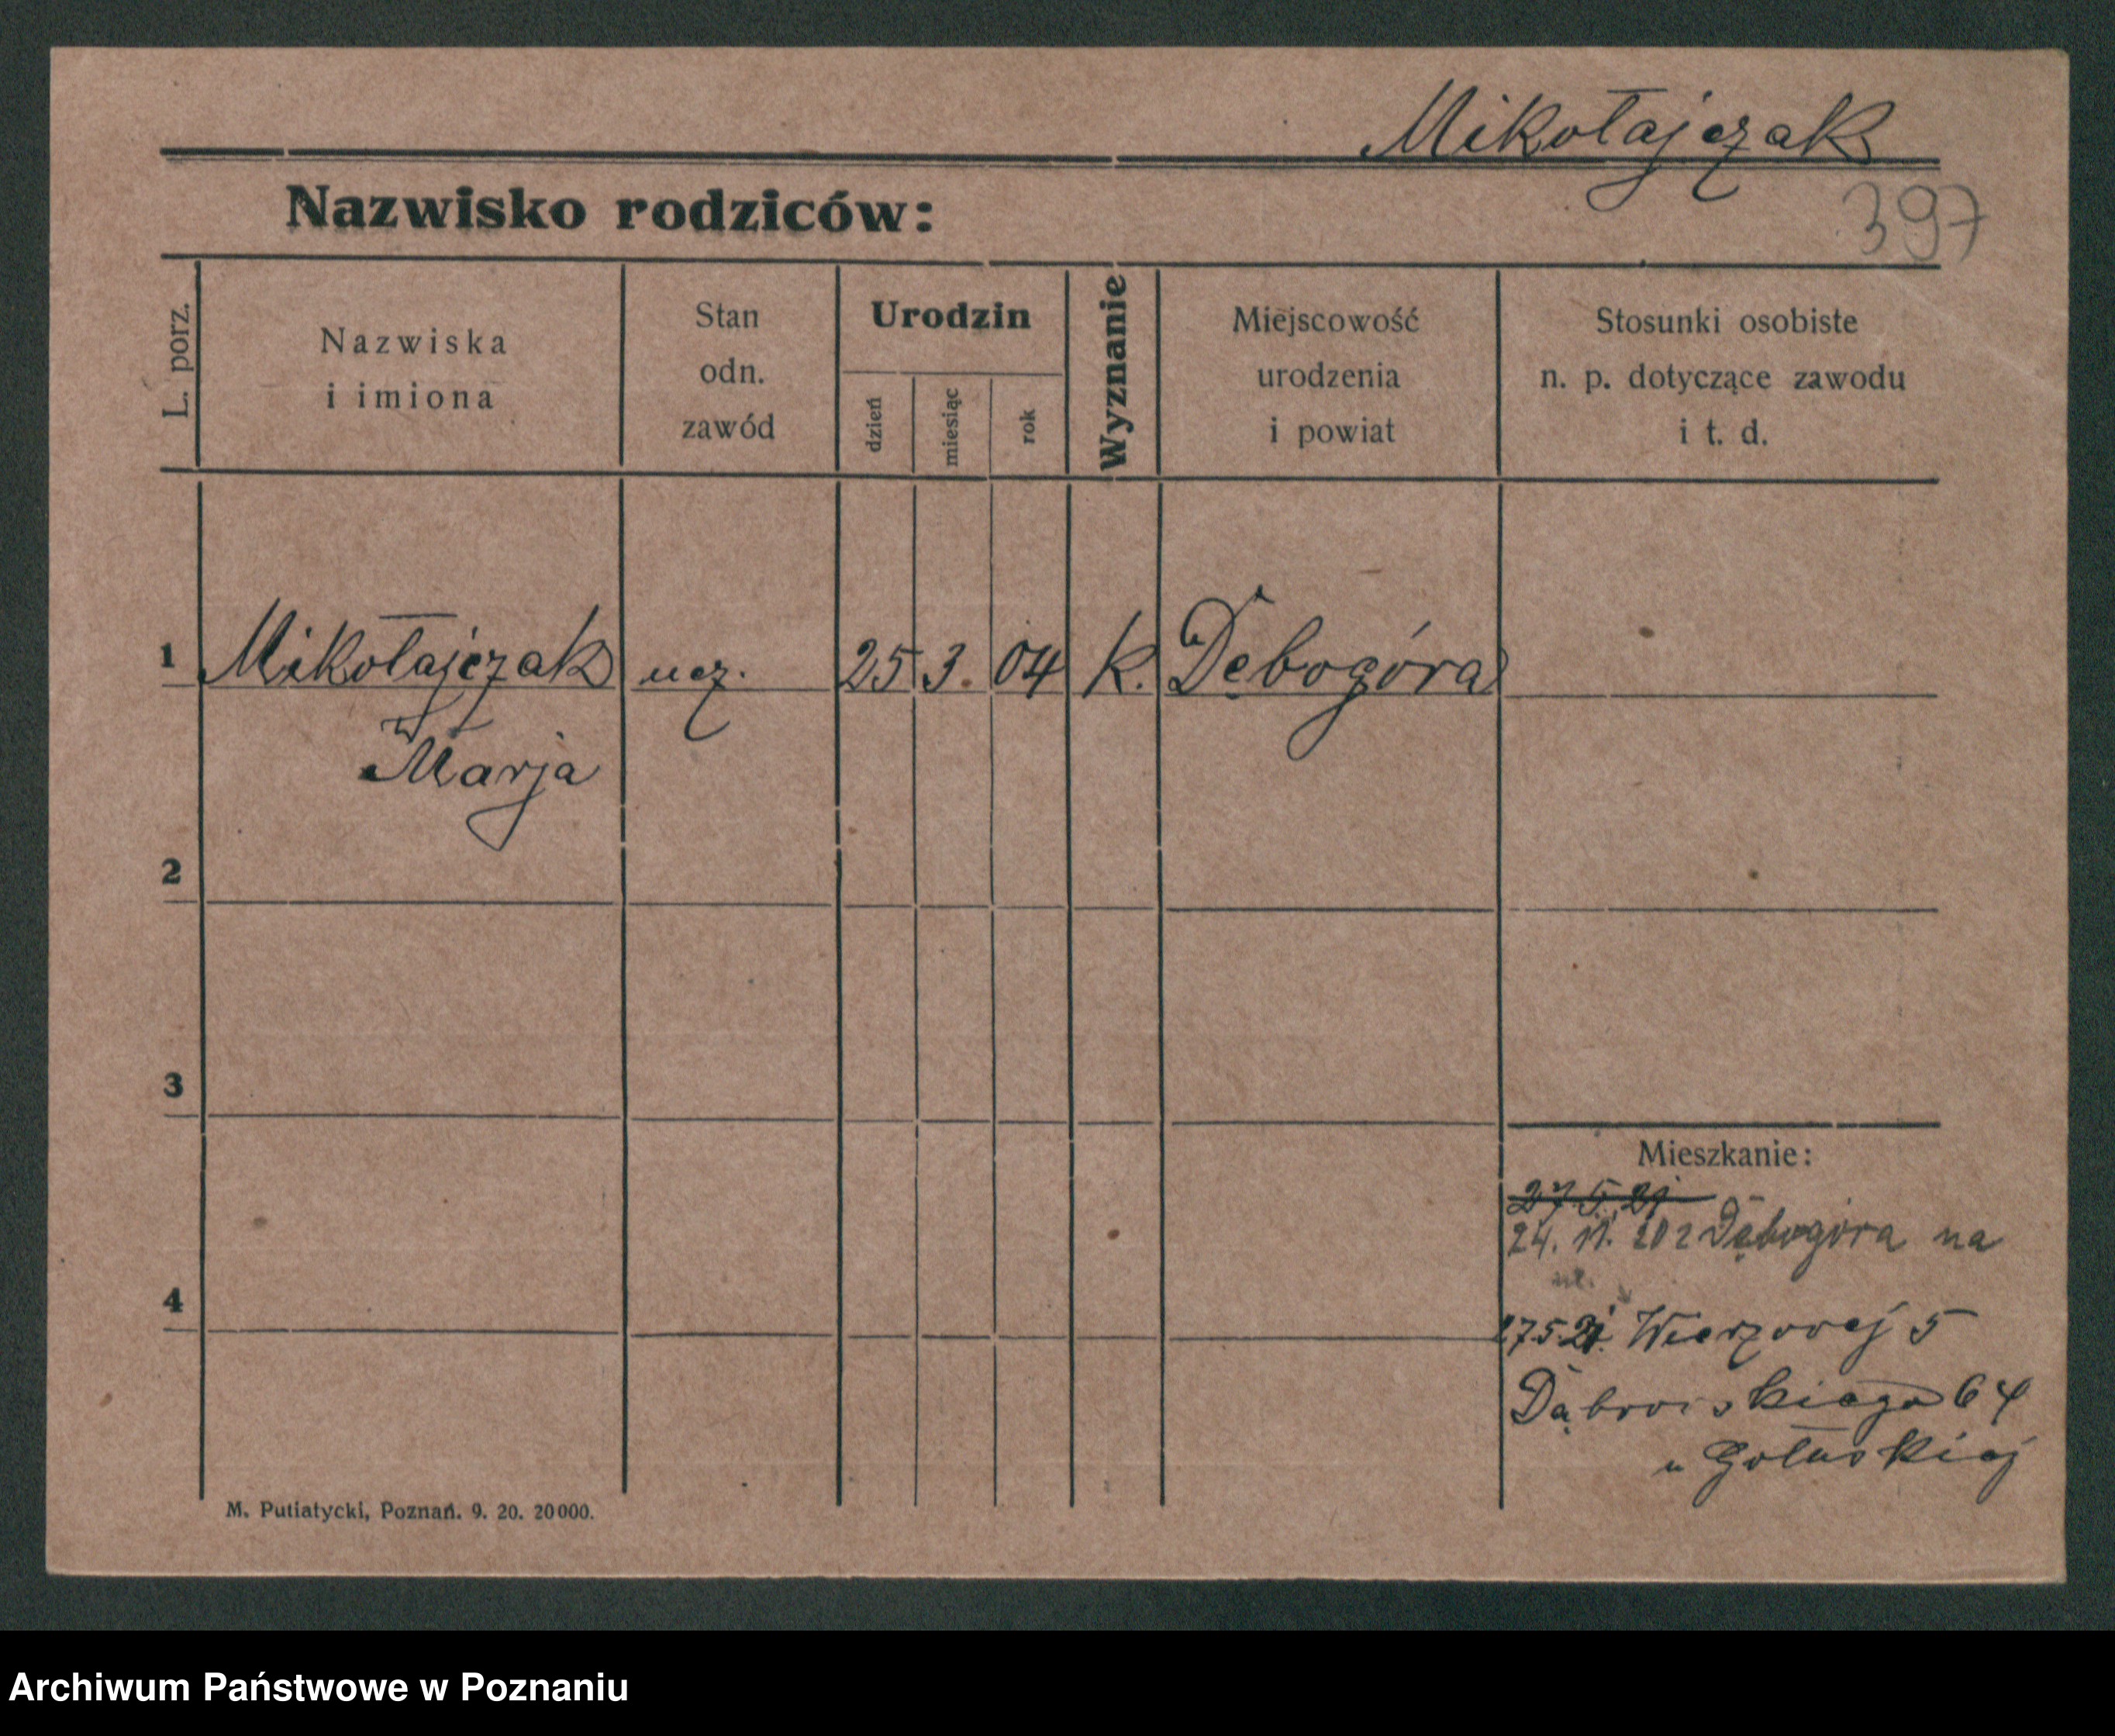 Mikołajczak
Nazwisko rodziców:
397
L. porz.
Nazwiska
i imiona
Stan
odn.
zawód
Urodzin
dzień
miesiąc
rok
Wyznanie
Miejscowość
urodzenia
i powiat
Stosunki osobiste
n. p. dotyczące zawodu
i t. d.
1 Mikołajczak ucz. 25 3. 04 k. Dębogóra
Marja
2
3
4
Mieszkanie:
27.5.21
24. 11. 20 z Dębogóra na
27.5.21. 5
Dąbrowskiego 64
u
M. Putiatycki, Poznań. 9. 20. 20000.
Archiwum Państwowe w Poznaniu